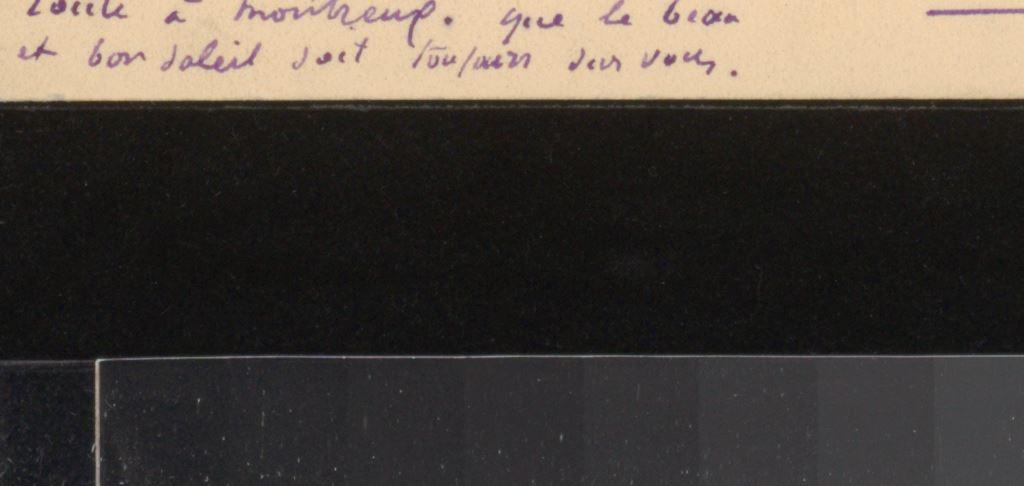 toute à Montreux. que le beau
et bon soleil soit toujours sur vous.